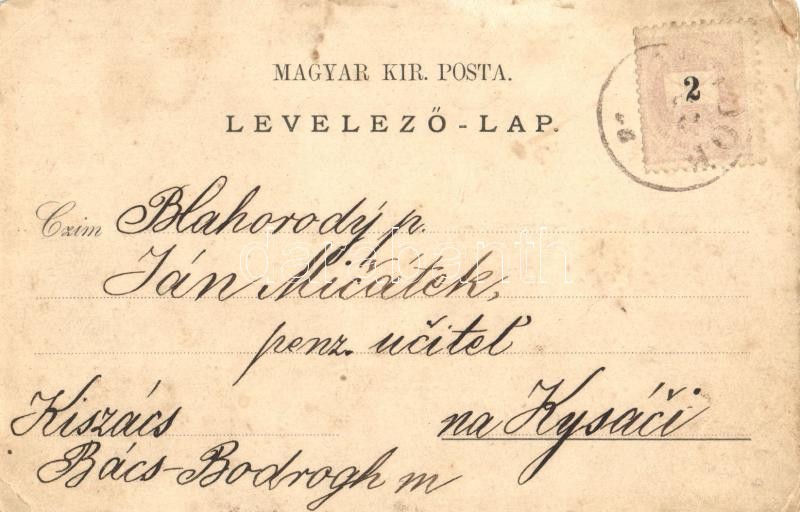 MAGYAR KIR. POSTA.
LEVELEZŐ-LAP.
2
Czim Blahorodý p.
Ján Mičátek,
penz. učiteľ
Kiszács na Kysáči
Bács-Bodrogh m
darabanth